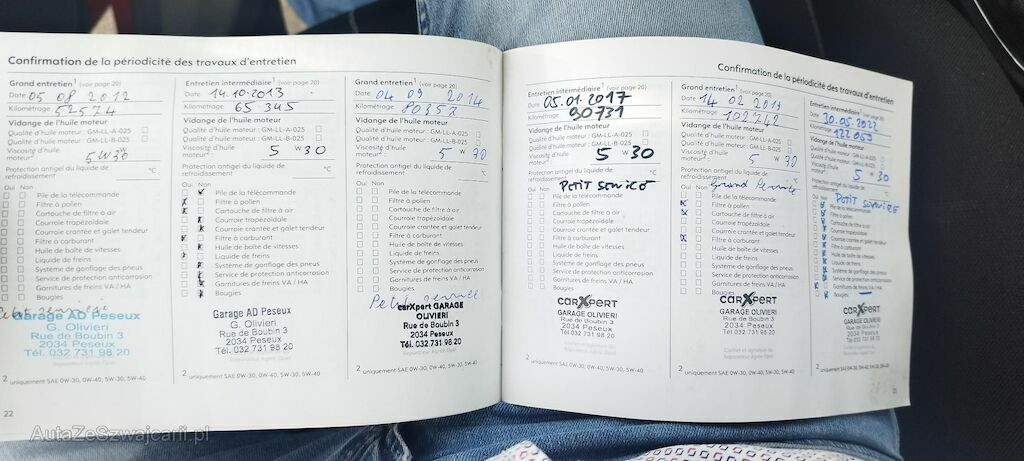 Confirmation de la périodicité des travaux d'entretien
Grand entretien¹ (voir page 20)
Date 05 08 2012
Kilométrage 52574
Vidange de l'huile moteur
Qualité d'huile moteur : GM-LL-A-025
Qualité d'huile moteur : GM-LL-B-025
Viscosité d'huile
moteur² 5W30
Protection antigel du liquide de
refroidissement °C
Oui Non
Pile de la télécommande
Filtre à pollen
Cartouche de filtre à air
Courroie trapézoïdale
Courroie crantée et galet tendeur
Filtre à carburant
Huile de boîte de vitesses
Liquide de freins
Système de gonflage des pneus
Service de protection anticorrosion
Garnitures de freins VA / HA
Bougies
Garage AD Peseux
G. Olivieri
Rue de Boubin 3
2034 Peseux
Tél. 032 731 98 20
² uniquement SAE 0W-30, 0W-40, 5W-30, 5W-40
22
Entretien intermédiaire¹ (voir page 20)
Date 14.10.2013
Kilométrage 65 345
Vidange de l'huile moteur
Qualité d'huile moteur : GM-LL-A-025
Qualité d'huile moteur : GM-LL-B-025
Viscosité d'huile
moteur² 5 W 30
Protection antigel du liquide de
refroidissement °C
Oui Non
Pile de la télécommande
Filtre à pollen
Cartouche de filtre à air
Courroie trapézoïdale
Courroie crantée et galet tendeur
Filtre à carburant
Huile de boîte de vitesses
Liquide de freins
Système de gonflage des pneus
Service de protection anticorrosion
Garnitures de freins VA / HA
Bougies
Garage AD Peseux
G. Olivieri
Rue de Boubin 3
2034 Peseux
Tél. 032 731 98 20
² uniquement SAE 0W-30, 0W-40, 5W-30, 5W-40
Grand entretien¹ (voir page 20)
Date 04 09 2014
Kilométrage 80357
Vidange de l'huile moteur
Qualité d'huile moteur : GM-LL-A-025
Qualité d'huile moteur : GM-LL-B-025
Viscosité d'huile
moteur² 5 W 30
Protection antigel du liquide de
refroidissement °C
Oui Non
Pile de la télécommande
Filtre à pollen
Cartouche de filtre à air
Courroie trapézoïdale
Courroie crantée et galet tendeur
Filtre à carburant
Huile de boîte de vitesses
Liquide de freins
Système de gonflage des pneus
Service de protection anticorrosion
Garnitures de freins VA / HA
Bougies
Petit
carXpert GARAGE
OLIVIERI
Rue de Boubin 3
2034 Peseux
Tél. 032 731 98 20
² uniquement SAE 0W-30, 0W-40, 5W-30, 5W-40
Confirmation de la périodicité des travaux d'entretien
Entretien intermédiaire¹ (voir page 20)
Date 05.01.2017
Kilométrage 90731
Vidange de l'huile moteur
Qualité d'huile moteur : GM-LL-A-025
Qualité d'huile moteur : GM-LL-B-025
Viscosité d'huile
moteur² 5 W 30
Protection antigel du liquide de
refroidissement °C
Oui Non PETIT SERVICE
Pile de la télécommande
Filtre à pollen
Cartouche de filtre à air
Courroie trapézoïdale
Courroie crantée et galet tendeur
Filtre à carburant
Huile de boîte de vitesses
Liquide de freins
Système de gonflage des pneus
Service de protection anticorrosion
Garnitures de freins VA / HA
Bougies
carXpert
GARAGE OLIVIERI
Rue de Boubin 3
2034 Peseux
Tél. 032 731 98 20
² uniquement SAE 0W-30, 0W-40, 5W-30, 5W-40
Grand entretien¹ (voir page 20)
Date 14 02 2019
Kilométrage 102242
Vidange de l'huile moteur
Qualité d'huile moteur : GM-LL-A-025
Qualité d'huile moteur : GM-LL-B-025
Viscosité d'huile
moteur² 5 W 30
Protection antigel du liquide de
refroidissement °C
Oui Non Grand
Pile de la télécommande
Filtre à pollen
Cartouche de filtre à air
Courroie trapézoïdale
Courroie crantée et galet tendeur
Filtre à carburant
Huile de boîte de vitesses
Liquide de freins
Système de gonflage des pneus
Service de protection anticorrosion
Garnitures de freins VA / HA
Bougies
carXpert
GARAGE OLIVIERI
Rue de Boubin 3
2034 Peseux
Tél. 032 731 98 20
Cachet et signature du
² uniquement SAE 0W-30, 0W-40, 5W-30, 5W-40
Entretien intermédiaire¹ (voir page 20)
Date 30.05.2022
Kilométrage 122 053
Vidange de l'huile moteur
Qualité d'huile moteur : GM-LL-A-025
Qualité d'huile moteur : GM-LL-B-025
Viscosité d'huile
moteur² 5 W 30
Protection antigel du liquide de
refroidissement °C
Oui Non PETIT SERVICE
Pile de la télécommande
Filtre à pollen
Cartouche de filtre à air
Courroie trapézoïdale
Courroie crantée et galet tendeur
Filtre à carburant
Huile de boîte de vitesses
Liquide de freins
Système de gonflage des pneus
Service de protection anticorrosion
Garnitures de freins VA / HA
Bougies
carXpert
GARAGE OLIVIERI
Rue de Boubin 3
2034 Peseux
Tél. 032 731 98 20
² uniquement SAE 0W-30, 0W-40, 5W-30, 5W-40
AutaZeSzwajcarii.pl